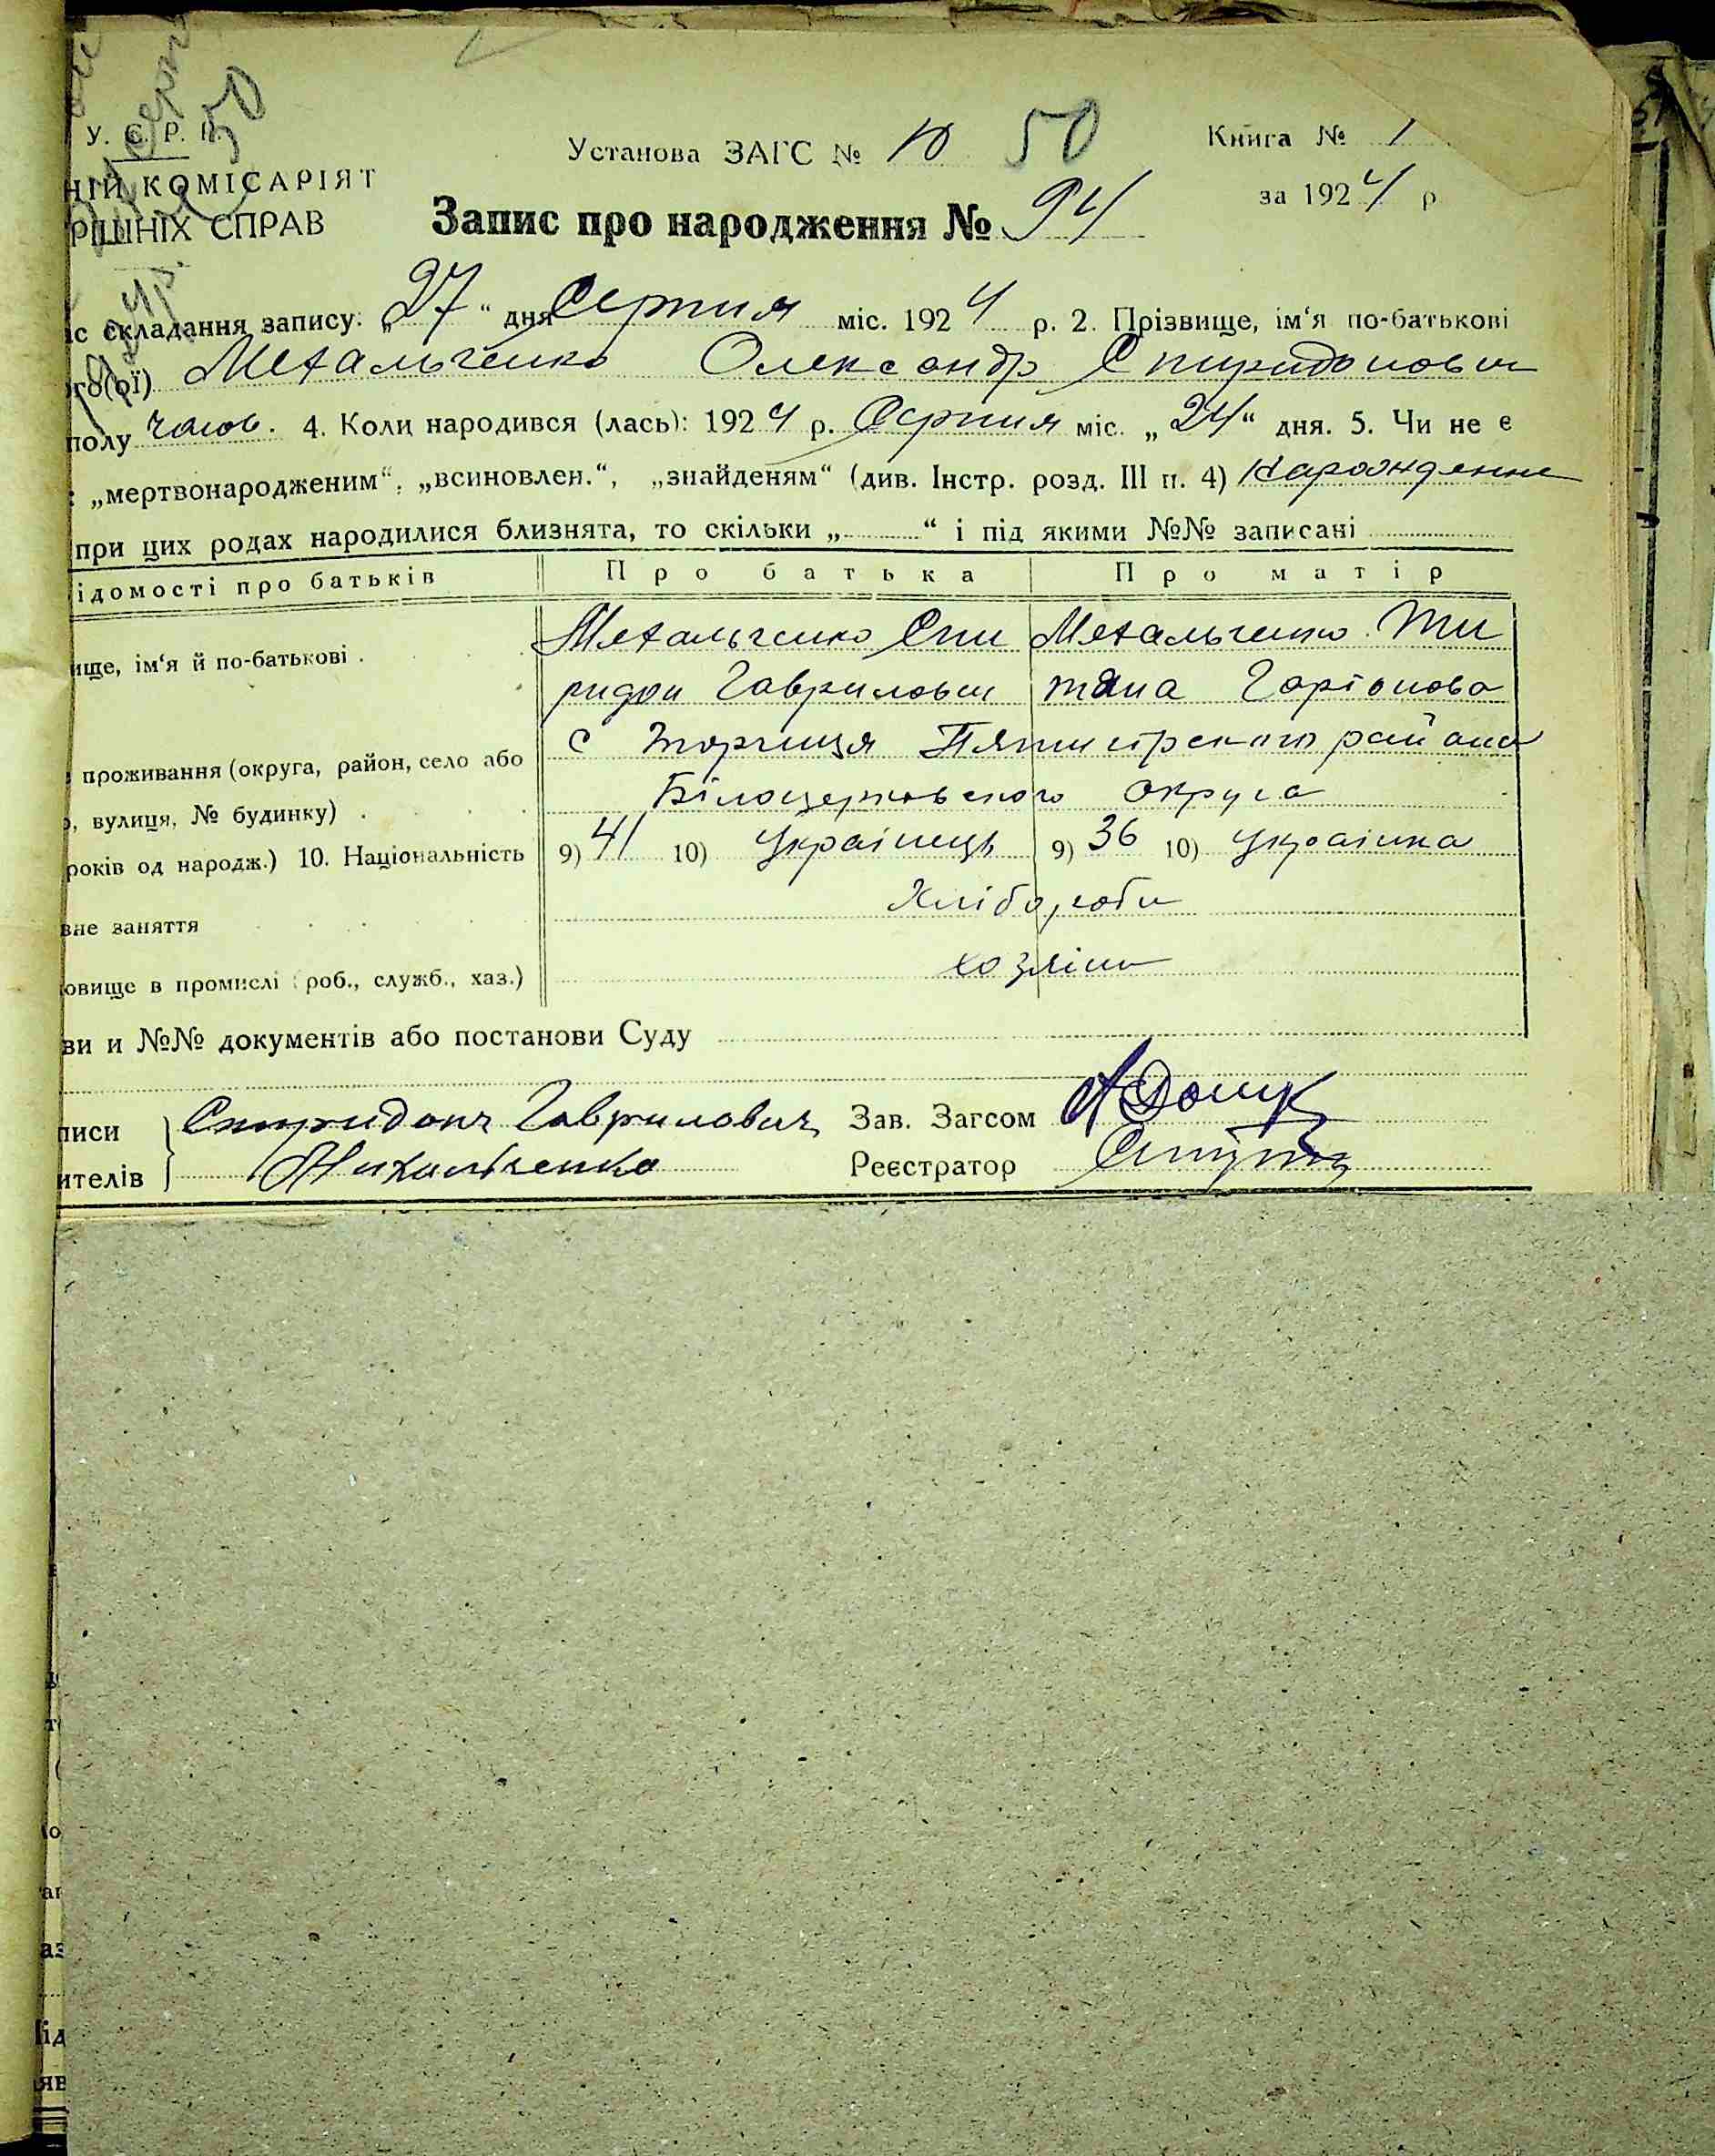 У. С. Р. Р.
Установа ЗАГС № 10 50 Книга № 1
НІЙ КОМІСАРІЯТ
за 1924 р
РІШНІХ СПРАВ
Запис про народження № 94
ас складання запису: „27“ дня Серпня міс. 1924 р. 2. Прізвище, ім‘я по-батькові
ого(ої) Мехальченко Олександр Спиридонович
полу чолов. 4. Коли народився (лась): 1924 р. Серпня міс. „24“ дня. 5. Чи не є
: „мертвонародженим“, „всиновлен.“, „знайденям“ (див. Інстр. розд. III п. 4)
при цих родах народилися близнята, то скільки „ “ і під якими №№ записані
ідомості про батьків Про батька Про матір
ище, ім‘я й по-батькові .
Мехальченко Спи
ридон Гаврилович
Мехальченко
проживання (округа, район, село або
с Торчиця района
, вулиця, № будинку) .
Білоцерковського округа
років од народж.) 10. Національність 9) 41 10) Українець 9) 36 10) Українка
вне заняття Хлібороби
овище в промислі (роб., служб., хаз.) хозяїни
ви и №№ документів або постанови Суду
писи Спиридон Гаврилович Зав. Загсом
ителів Михальченко Реєстратор